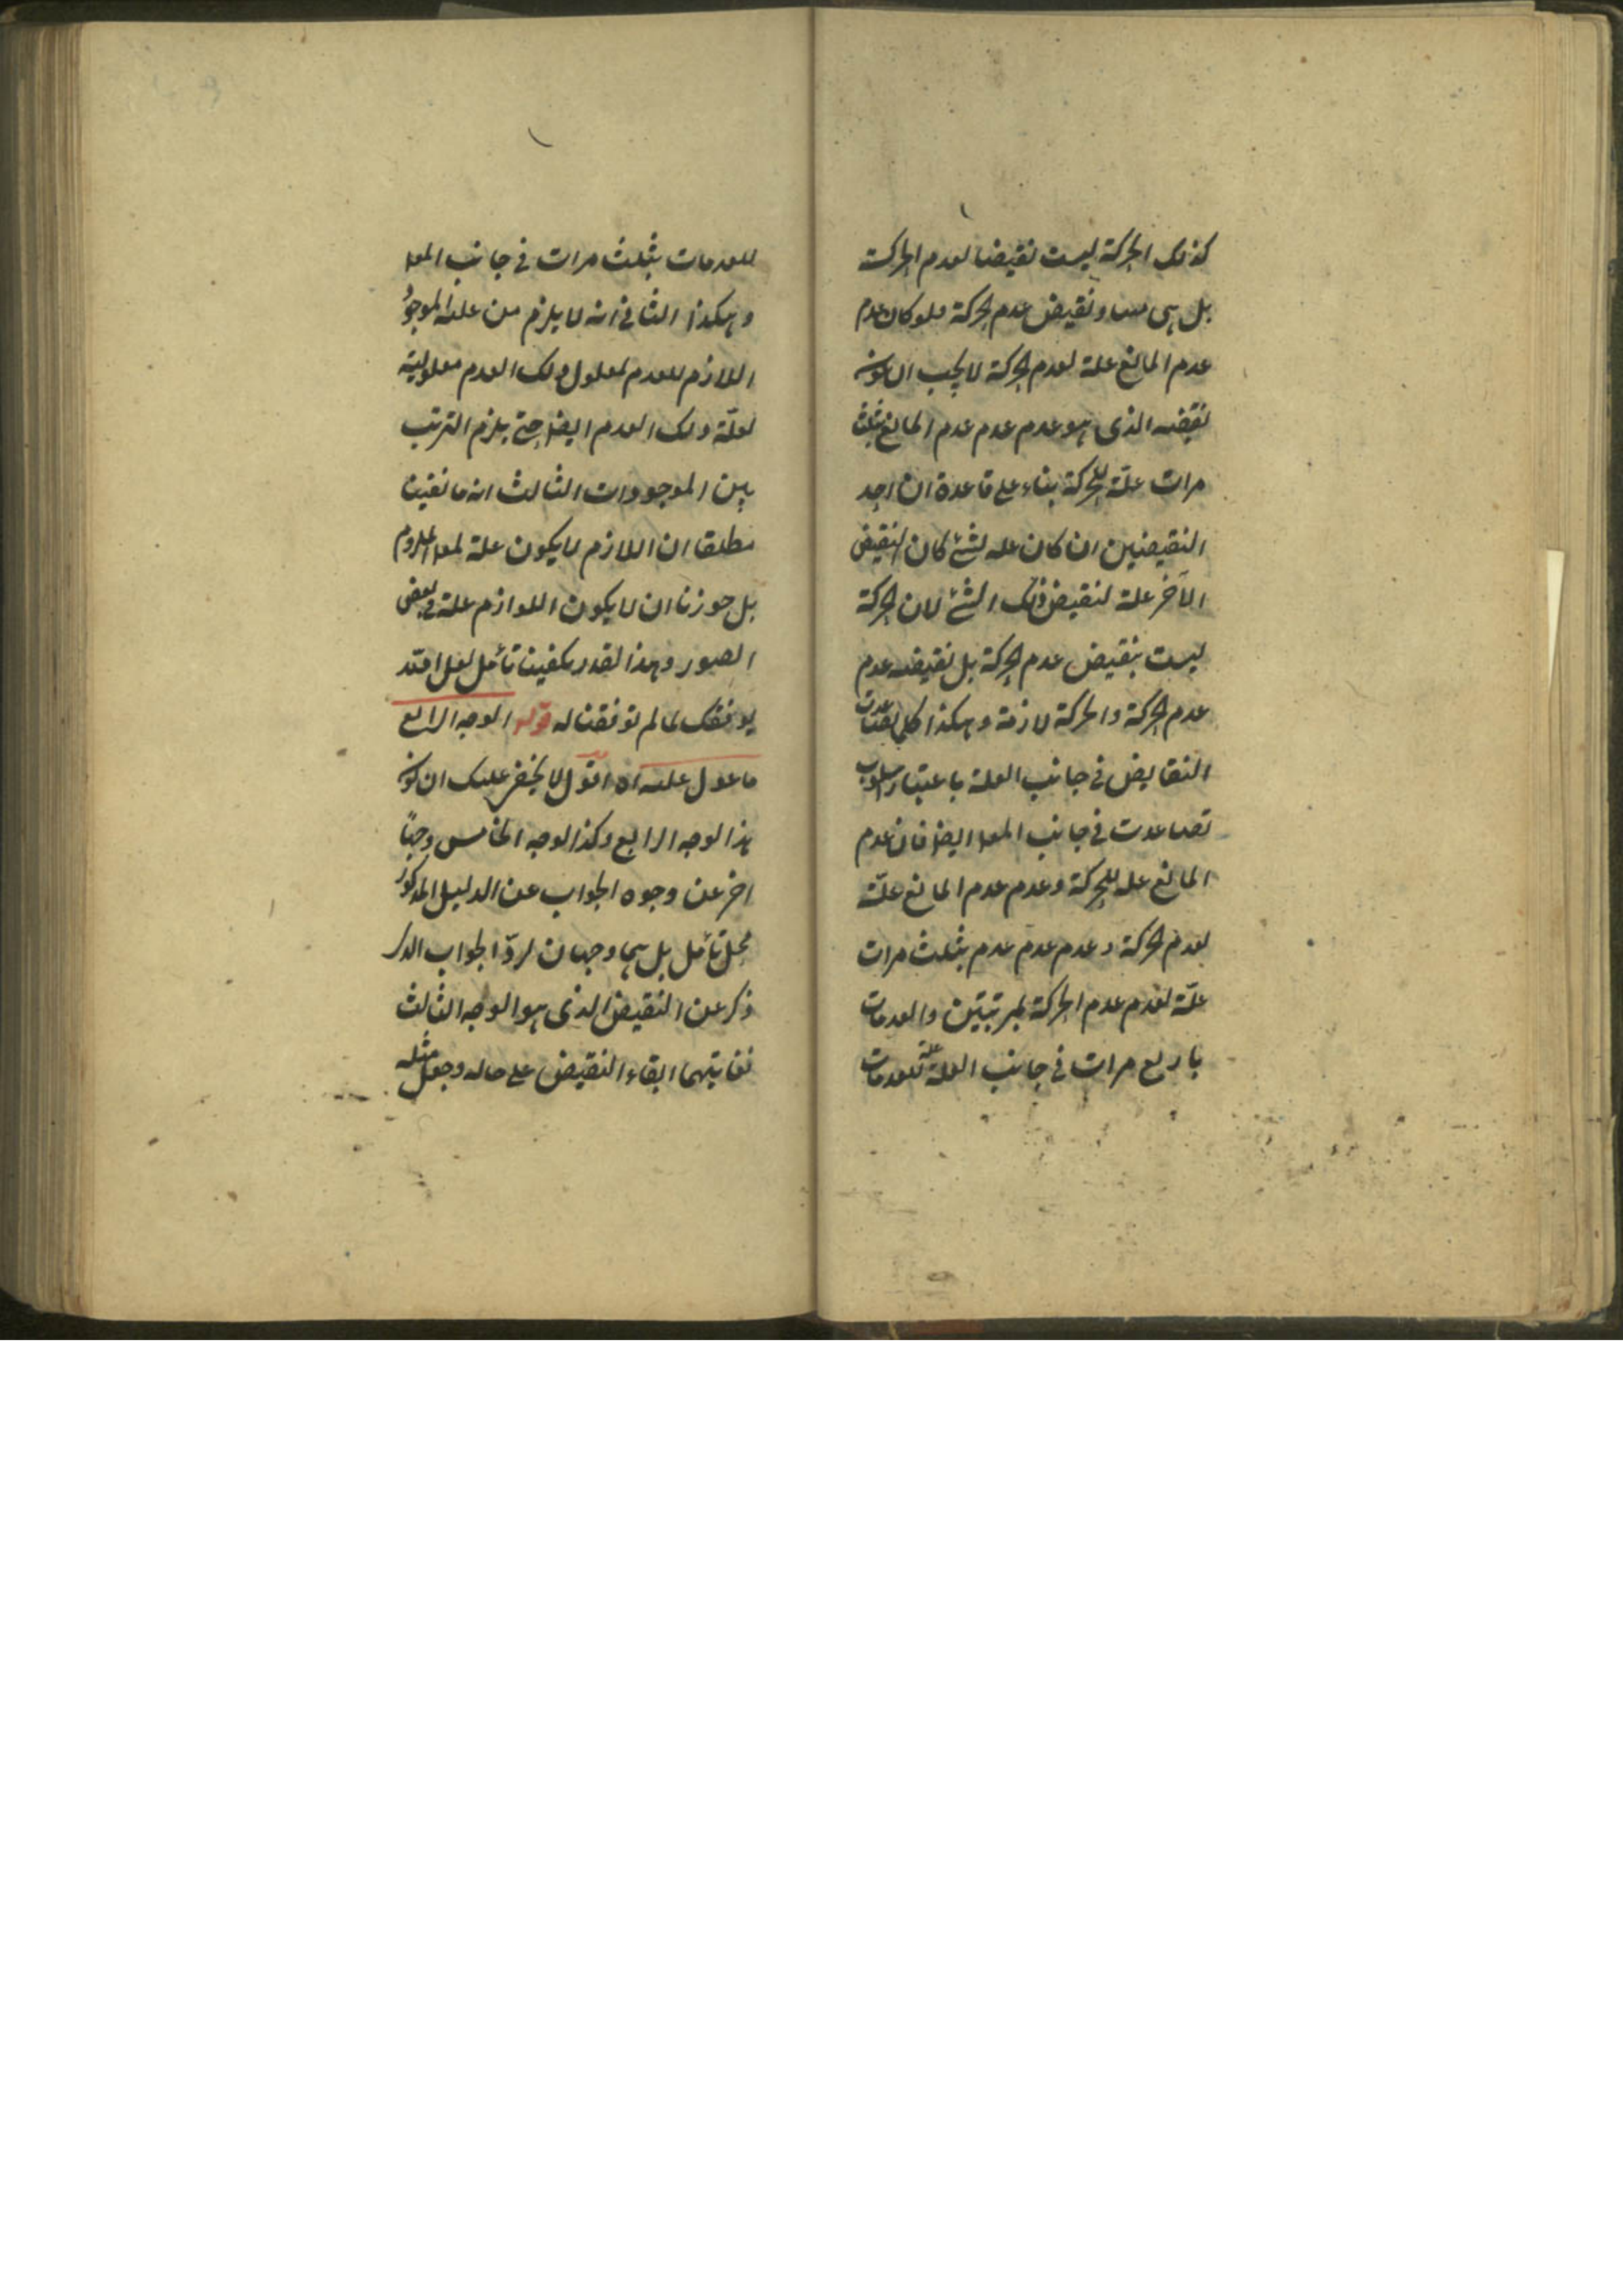 كذلك الحركة ليست نقيضا لعدم الحركة
بل هي مساو نقيض عدم الحركة فلو كان عدم
عدم المانع علة لعدم الحركة لا يجب ان يكون
نقيضه الذى هو عدم عدم عدم المانع بثلث
مرات علّة للحركة بناء على قاعدة ان احد
النقيضين ان كان علة لشئ كان النقيض
الآخر علة لنقيض ذلك الشئ لان الحركة
ليست بنقيض عدم الحركة بل نقيضه عدم
عدم الحركة والحركة لازمة وهكذا كلما تصاعدت
النقايض في جانب العلة باعتبار السلوب
تصاعدت في جانب المعلول ايضا فان عدم
المانع علة للحركة وعدم عدم المانع علّة
لعدم الحركة وعدم عدم عدم بثلث مرات
علّة لعدم عدم الحركة بمرتبتين والعدمات
باربع مرات في جانب العلة علة للعدمات
للعدمات بثلث مرات في جانب المعلول
وهكذا الثاني انه لا يلزم من علية الموجود
اللازم للعدم لمعلول ذلك العدم معلولية
لعلّة ذلك العدم ايضا حتى يلزم الترتب
بين الموجودات الثالث انه ما نفينا
مطلقا ان اللازم لا يكون علة لمعلول الملزوم
بل جوزنا ان لا يكون اللوازم علة في بعض
الصور وهذا القدر يكفينا تأمل لعل الله
يوفقك لما لم توفقنا له قوله الوجه الرابع
ما عول عليه اه اقول لا يخفى عليك ان كون
هذا الوجه الرابع وكذا الوجه الخامس وجهاً
اخر عن وجوه الجواب عن الدليل المذكور
محل تأمل بل هما وجهان لردّ الجواب الذى
ذكر عن النقيض الذى هو الوجه الثالث
فغايتهما ابقاء النقيض على حاله وجعل مثله